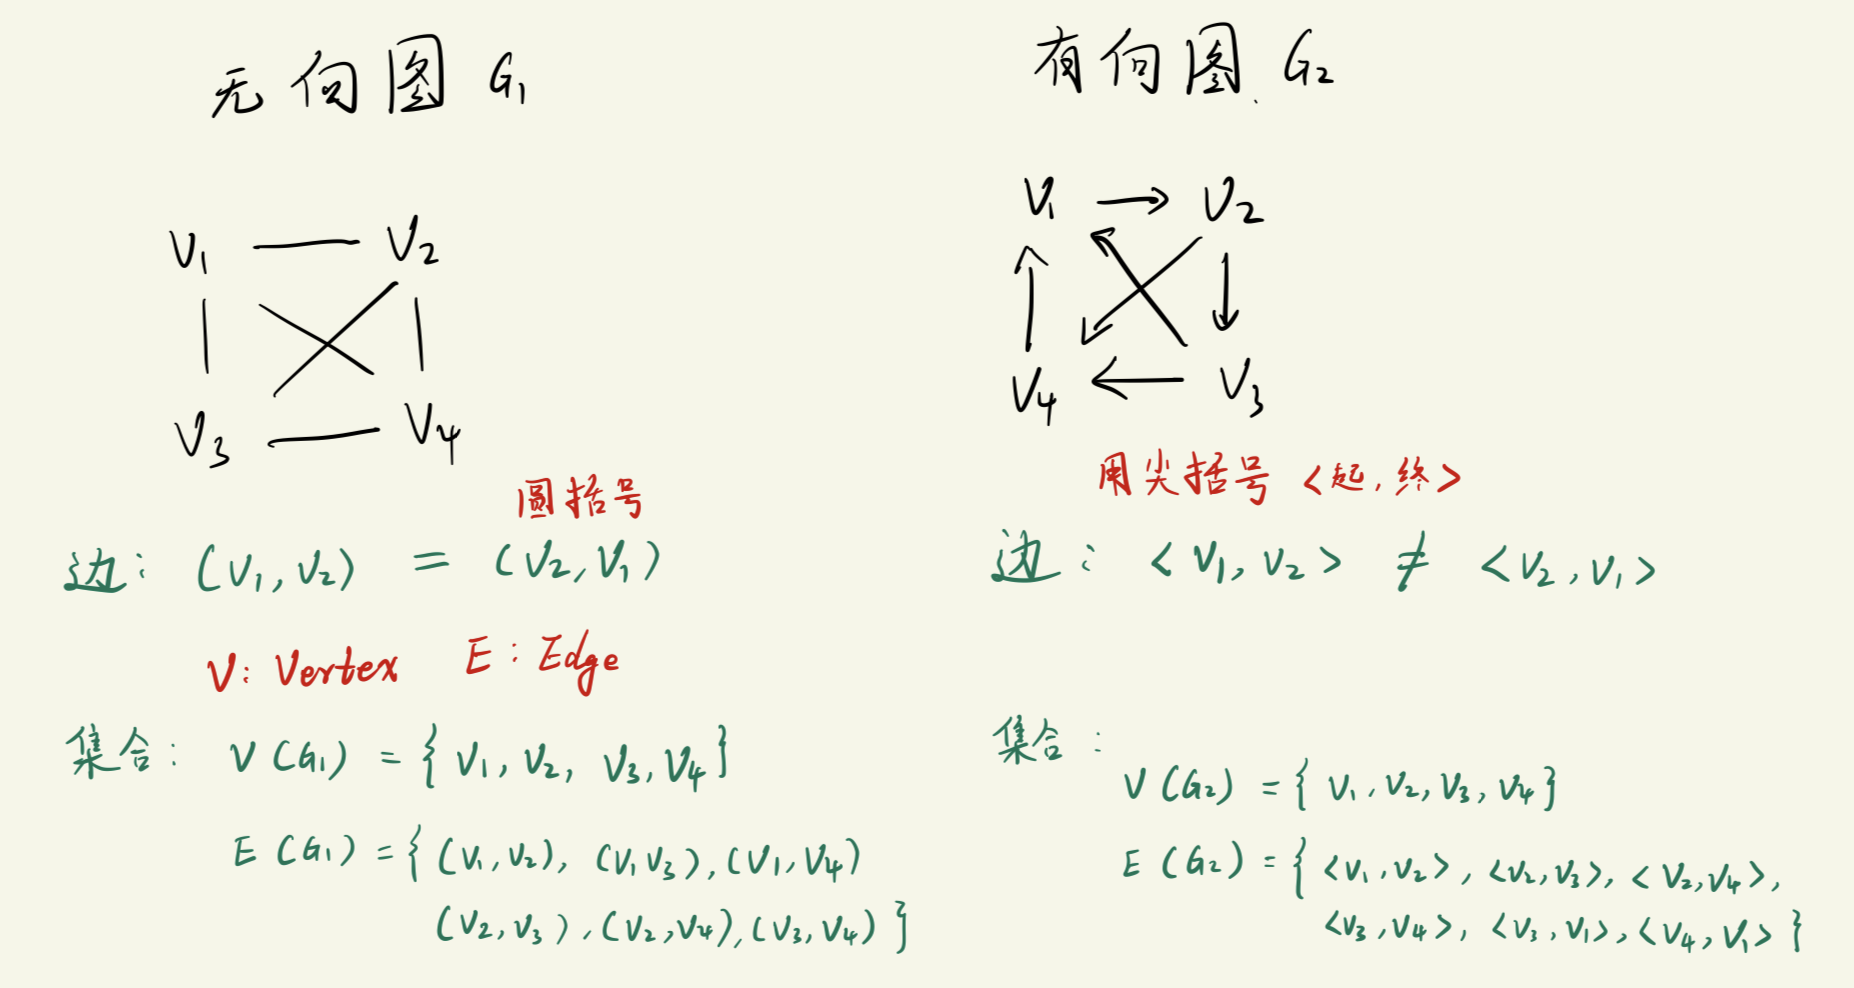 无向图 G₁
V₁ V₂
V₃ V₄
圆括号
边: (V₁, V₂) = (V₂, V₁)
V: Vertex E: Edge
集合: V (G₁) = { V₁, V₂, V₃, V₄ }
E (G₁) = { (V₁, V₂), (V₁ V₃), (V₁, V₄)
(V₂, V₃), (V₂, V₄), (V₃, V₄) }
有向图. G₂
V₁ V₂
V₄ V₃
用尖括号 <起, 终>
边: <V₁, V₂> ≠ <V₂, V₁>
集合:
V (G₂) = { V₁, V₂, V₃, V₄ }
E (G₂) = { <V₁, V₂>, <V₂, V₃>, <V₂, V₄>,
<V₃, V₄>, <V₃, V₁>, <V₄, V₁> }